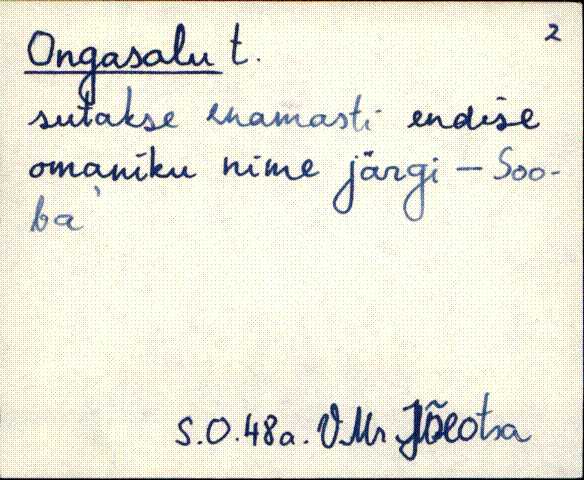 2
Ongasalu t.
sutakse enamasti endise
omaniku nime järgi – Soo-
ba
S.O. 48a. V.Mr Jõeotsa